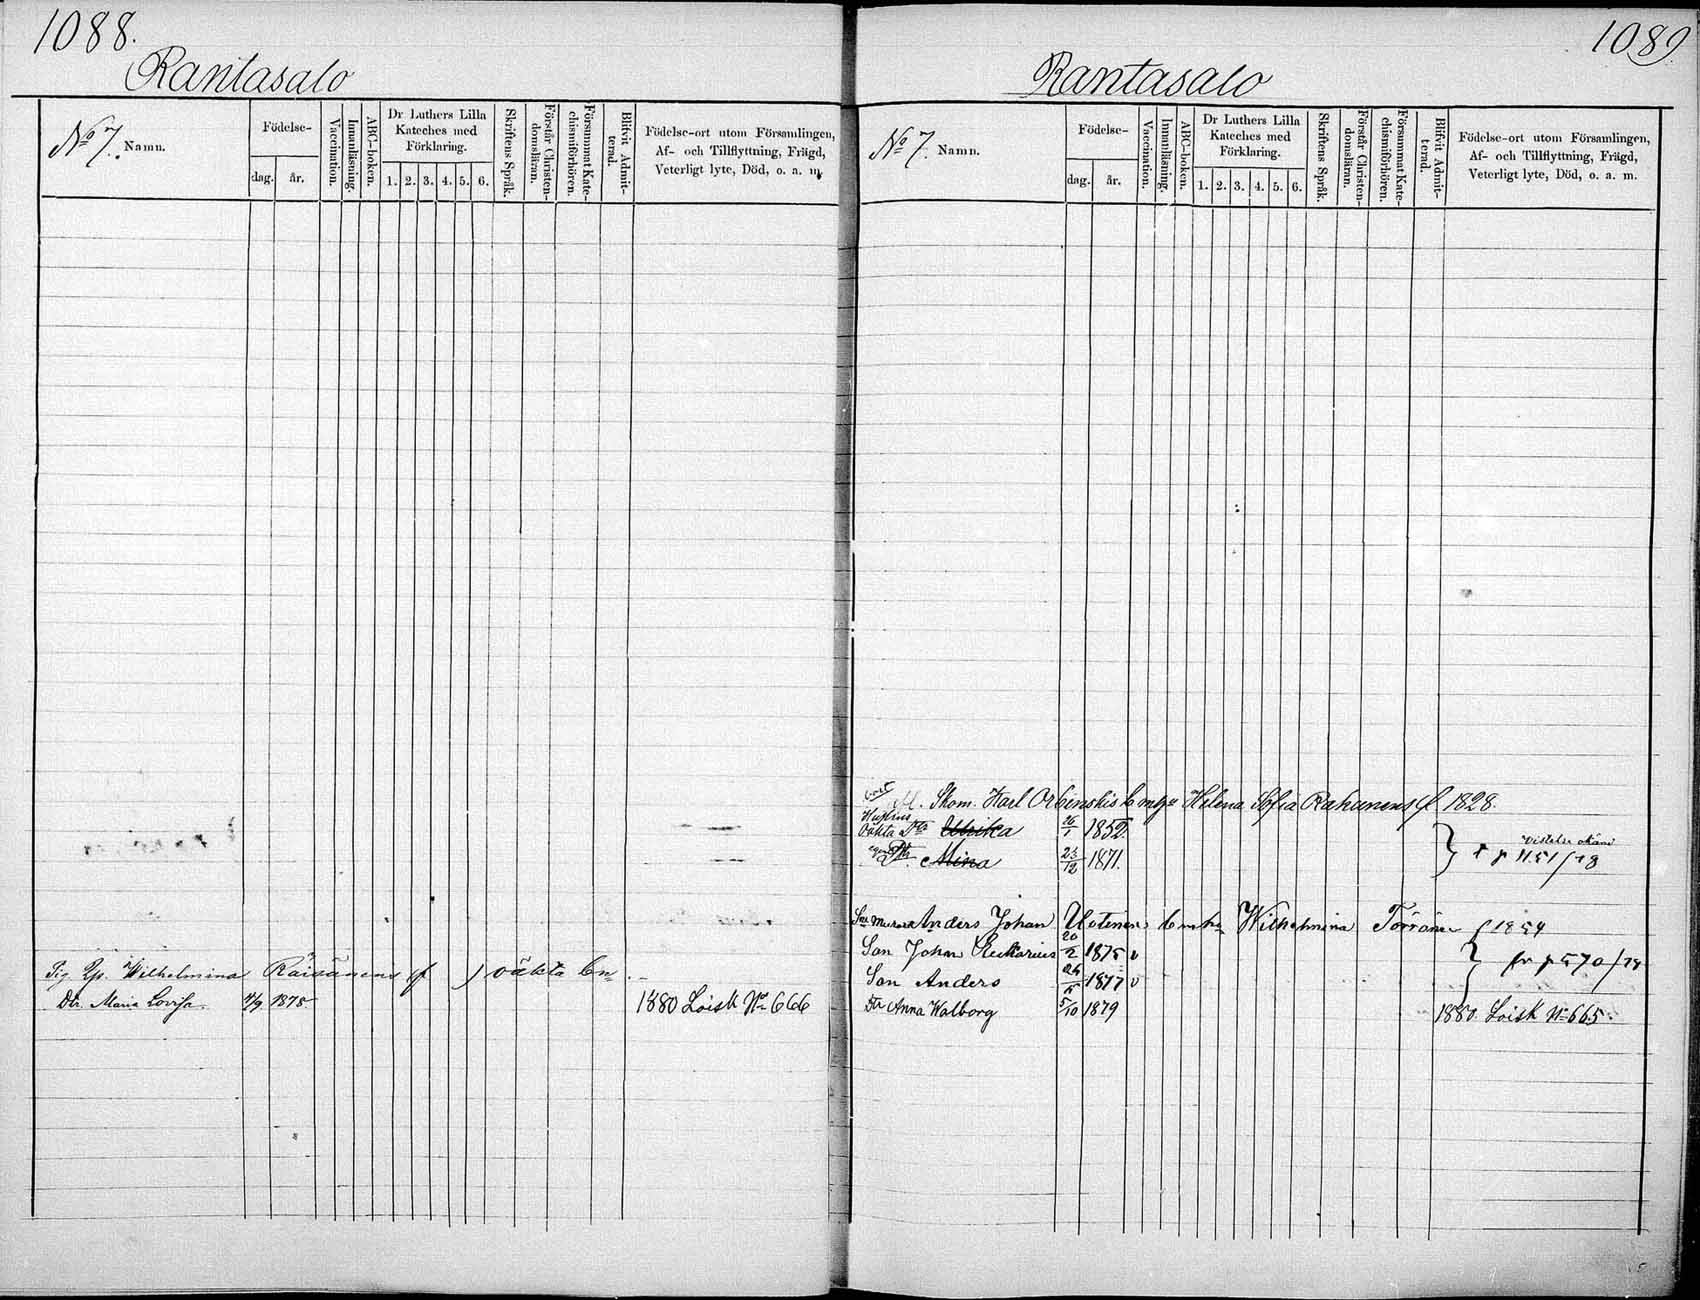 1088.
Rantasalo
No 7. Namn.
Födelse-
dag. år.
Vaccination.
Innanläsning.
ABC-boken.
Dr Luthers Lilla
Kateches med
Förklaring.
1. 2. 3. 4. 5. 6.
Skriftens Språk.
Förstår Christen-
domsläran.
Försummat Kate-
chismiförhören.
Blifvit Admit-
terad.
Födelse-ort utom Församlingen,
Af- och Tillflyttning, Frägd,
Veterligt lyte, Död, o. a. m.
Pig. Wilhelmina Räisänens (f ) oäkta
Dtr. Maria Lovisa 4/9 1878 1880 Loisk No 666
1089
Rantasalo
No 7. Namn.
Födelse-
dag. år.
Vaccination.
Innanläsning.
ABC-boken.
Dr Luthers Lilla
Kateches med
Förklaring.
1. 2. 3. 4. 5. 6.
Skriftens Språk.
Förstår Christen-
domsläran.
Försummat Kate-
chismiförhören.
Blifvit Admit-
terad.
Födelse-ort utom Församlingen,
Af- och Tillflyttning, Frägd,
Veterligt lyte, Död, o. a. m.
Skom. Karl Helena Sofia Rahunens f. 1828
Hustrus
oäkta Dtr Ulrika 26/1 1852
Dtr. Mina 23/12 1871. p 1151/78
Anders Johan Ustinen Wilhelmina Törrönen f 1854
Son Johan 20/2 1875 v p 570/78
Son Anders 1877 v
Dtr Anna Walborg 5/10 1879 1880. Loisk No 665.